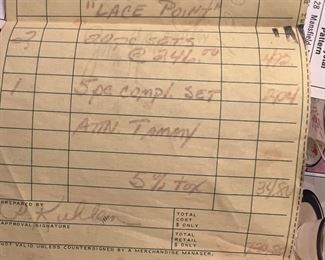 "LACE POINT"
2 20 pc SETS
@ 246.00 492
1 5 pc compl. SET 204
ATTN TAMMY
5% TAX 34 80
PREPARED BY
TOTAL COST $ ONLY
APPROVAL SIGNATURE
TOTAL RETAIL $ ONLY
NOT VALID UNLESS COUNTERSIGNED BY A MERCHANDISE MANAGER.
28 Mansfield
Pattern